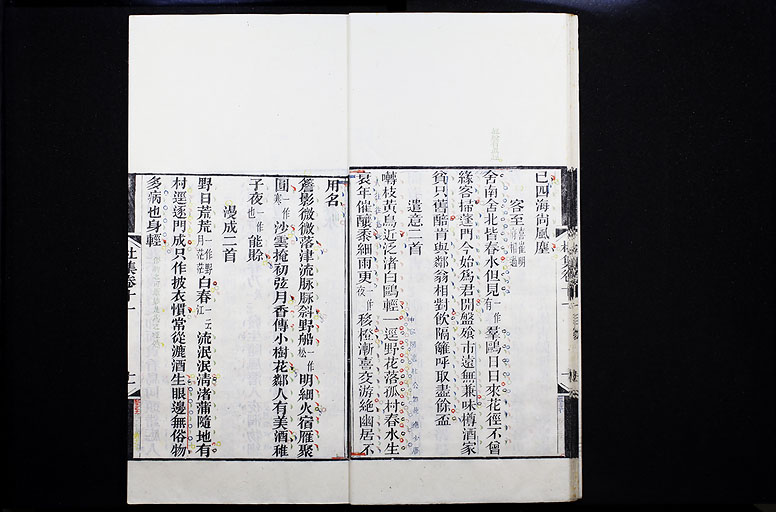 已四海尚風塵
客至 喜崔明府相過
舍南舍北皆春水但見一作有羣鷗日日來花徑不曾
緣客掃蓬門今始爲君開盤飱市遠無兼味樽酒家
貧只舊醅肯與鄰翁相對飲隔籬呼取盡餘盃
遣意二首
囀枝黃鳥近泛渚白鷗輕一逕野花落孤村春水生
衰年催釀黍細雨更一作夜移橙漸喜交游絶幽居不
用名
簷影微微落津流脉脉斜野船一作松明細火宿雁聚
圓一作寒沙雲掩初弦月香傳小樹花鄰人有美酒稚
子夜一作也能賖
漫成二首
野日荒荒一作野月茫茫白春一云江流泯泯清渚蒲隨地有
村逕逐門成只作披衣慣常從漉酒生眼邊無俗物
多病也身輕
杜集卷十一